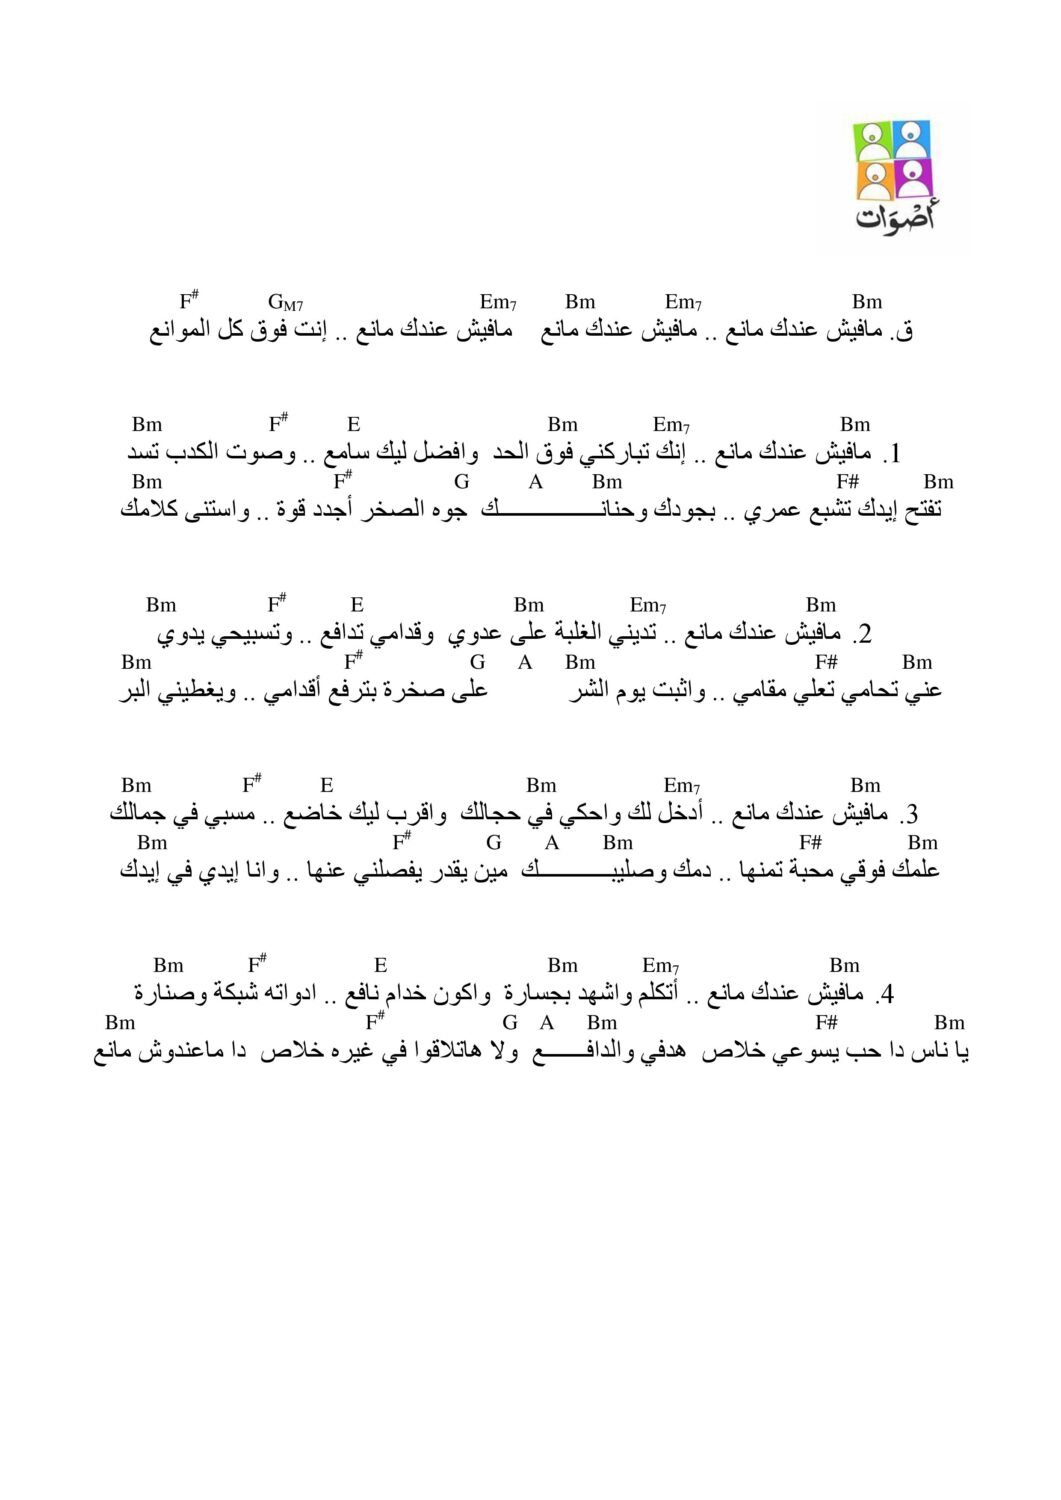 أصوات
F# GM7 Em7 Bm Em7 Bm
ق. مافيش عندك مانع .. مافيش عندك مانع مافيش عندك مانع .. إنت فوق كل الموانع
Bm F# E Bm Em7 Bm
1. مافيش عندك مانع .. إنك تباركني فوق الحد وافضل ليك سامع .. وصوت الكدب تسد
Bm F# G A Bm F# Bm
تفتح إيدك تشبع عمري .. بجودك وحنانـــــــــك جوه الصخر أجدد قوة .. واستنى كلامك
Bm F# E Bm Em7 Bm
2. مافيش عندك مانع .. تديني الغلبة على عدوي وقدامي تدافع .. وتسبيحي يدوي
Bm F# G A Bm F# Bm
عني تحامي تعلي مقامي .. واثبت يوم الشر على صخرة بترفع أقدامي .. ويغطيني البر
Bm F# E Bm Em7 Bm
3. مافيش عندك مانع .. أدخل لك واحكي في حجالك واقرب ليك خاضع .. مسبي في جمالك
Bm F# G A Bm F# Bm
علمك فوقي محبة تمنها .. دمك وصليبـــــــك مين يقدر يفصلني عنها .. وانا إيدي في إيدك
Bm F# E Bm Em7 Bm
4. مافيش عندك مانع .. أتكلم واشهد بجسارة واكون خدام نافع .. ادواته شبكة وصنارة
Bm F# G A Bm F# Bm
يا ناس دا حب يسوعي خلاص هدفي والدافـــــع ولا هاتلاقوا في غيره خلاص دا ماعندوش مانع